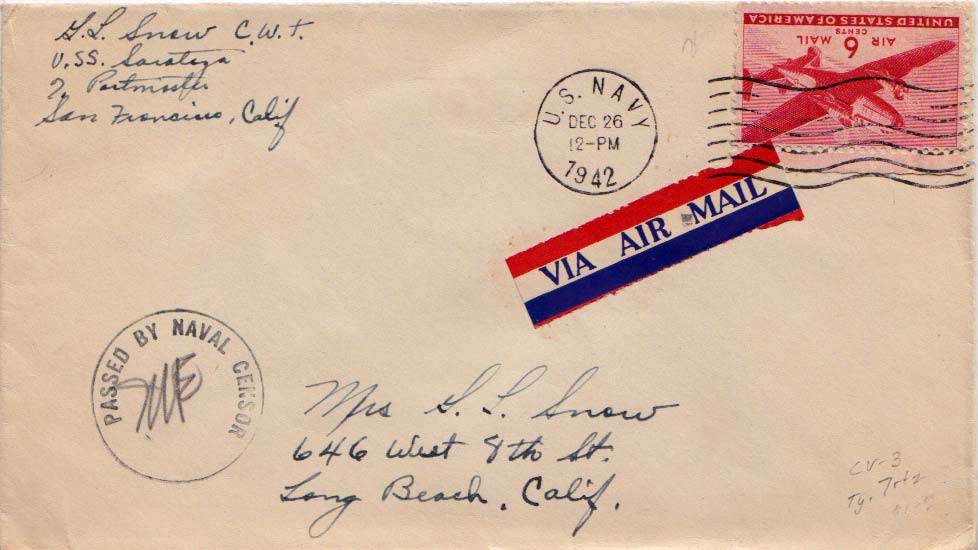 G. L. Snow C.W.T.
U.S.S. Saratoga
% Postmaster
San Francisco, Calif
UNITED STATES OF AMERICA
AIR MAIL
6 CENTS
U.S. NAVY
DEC 26
12-PM
1942
VIA AIR MAIL
PASSED BY NAVAL CENSOR
Mrs G. L. Snow
646 West 8th St.
Long Beach, Calif.
CV-3
Ty.